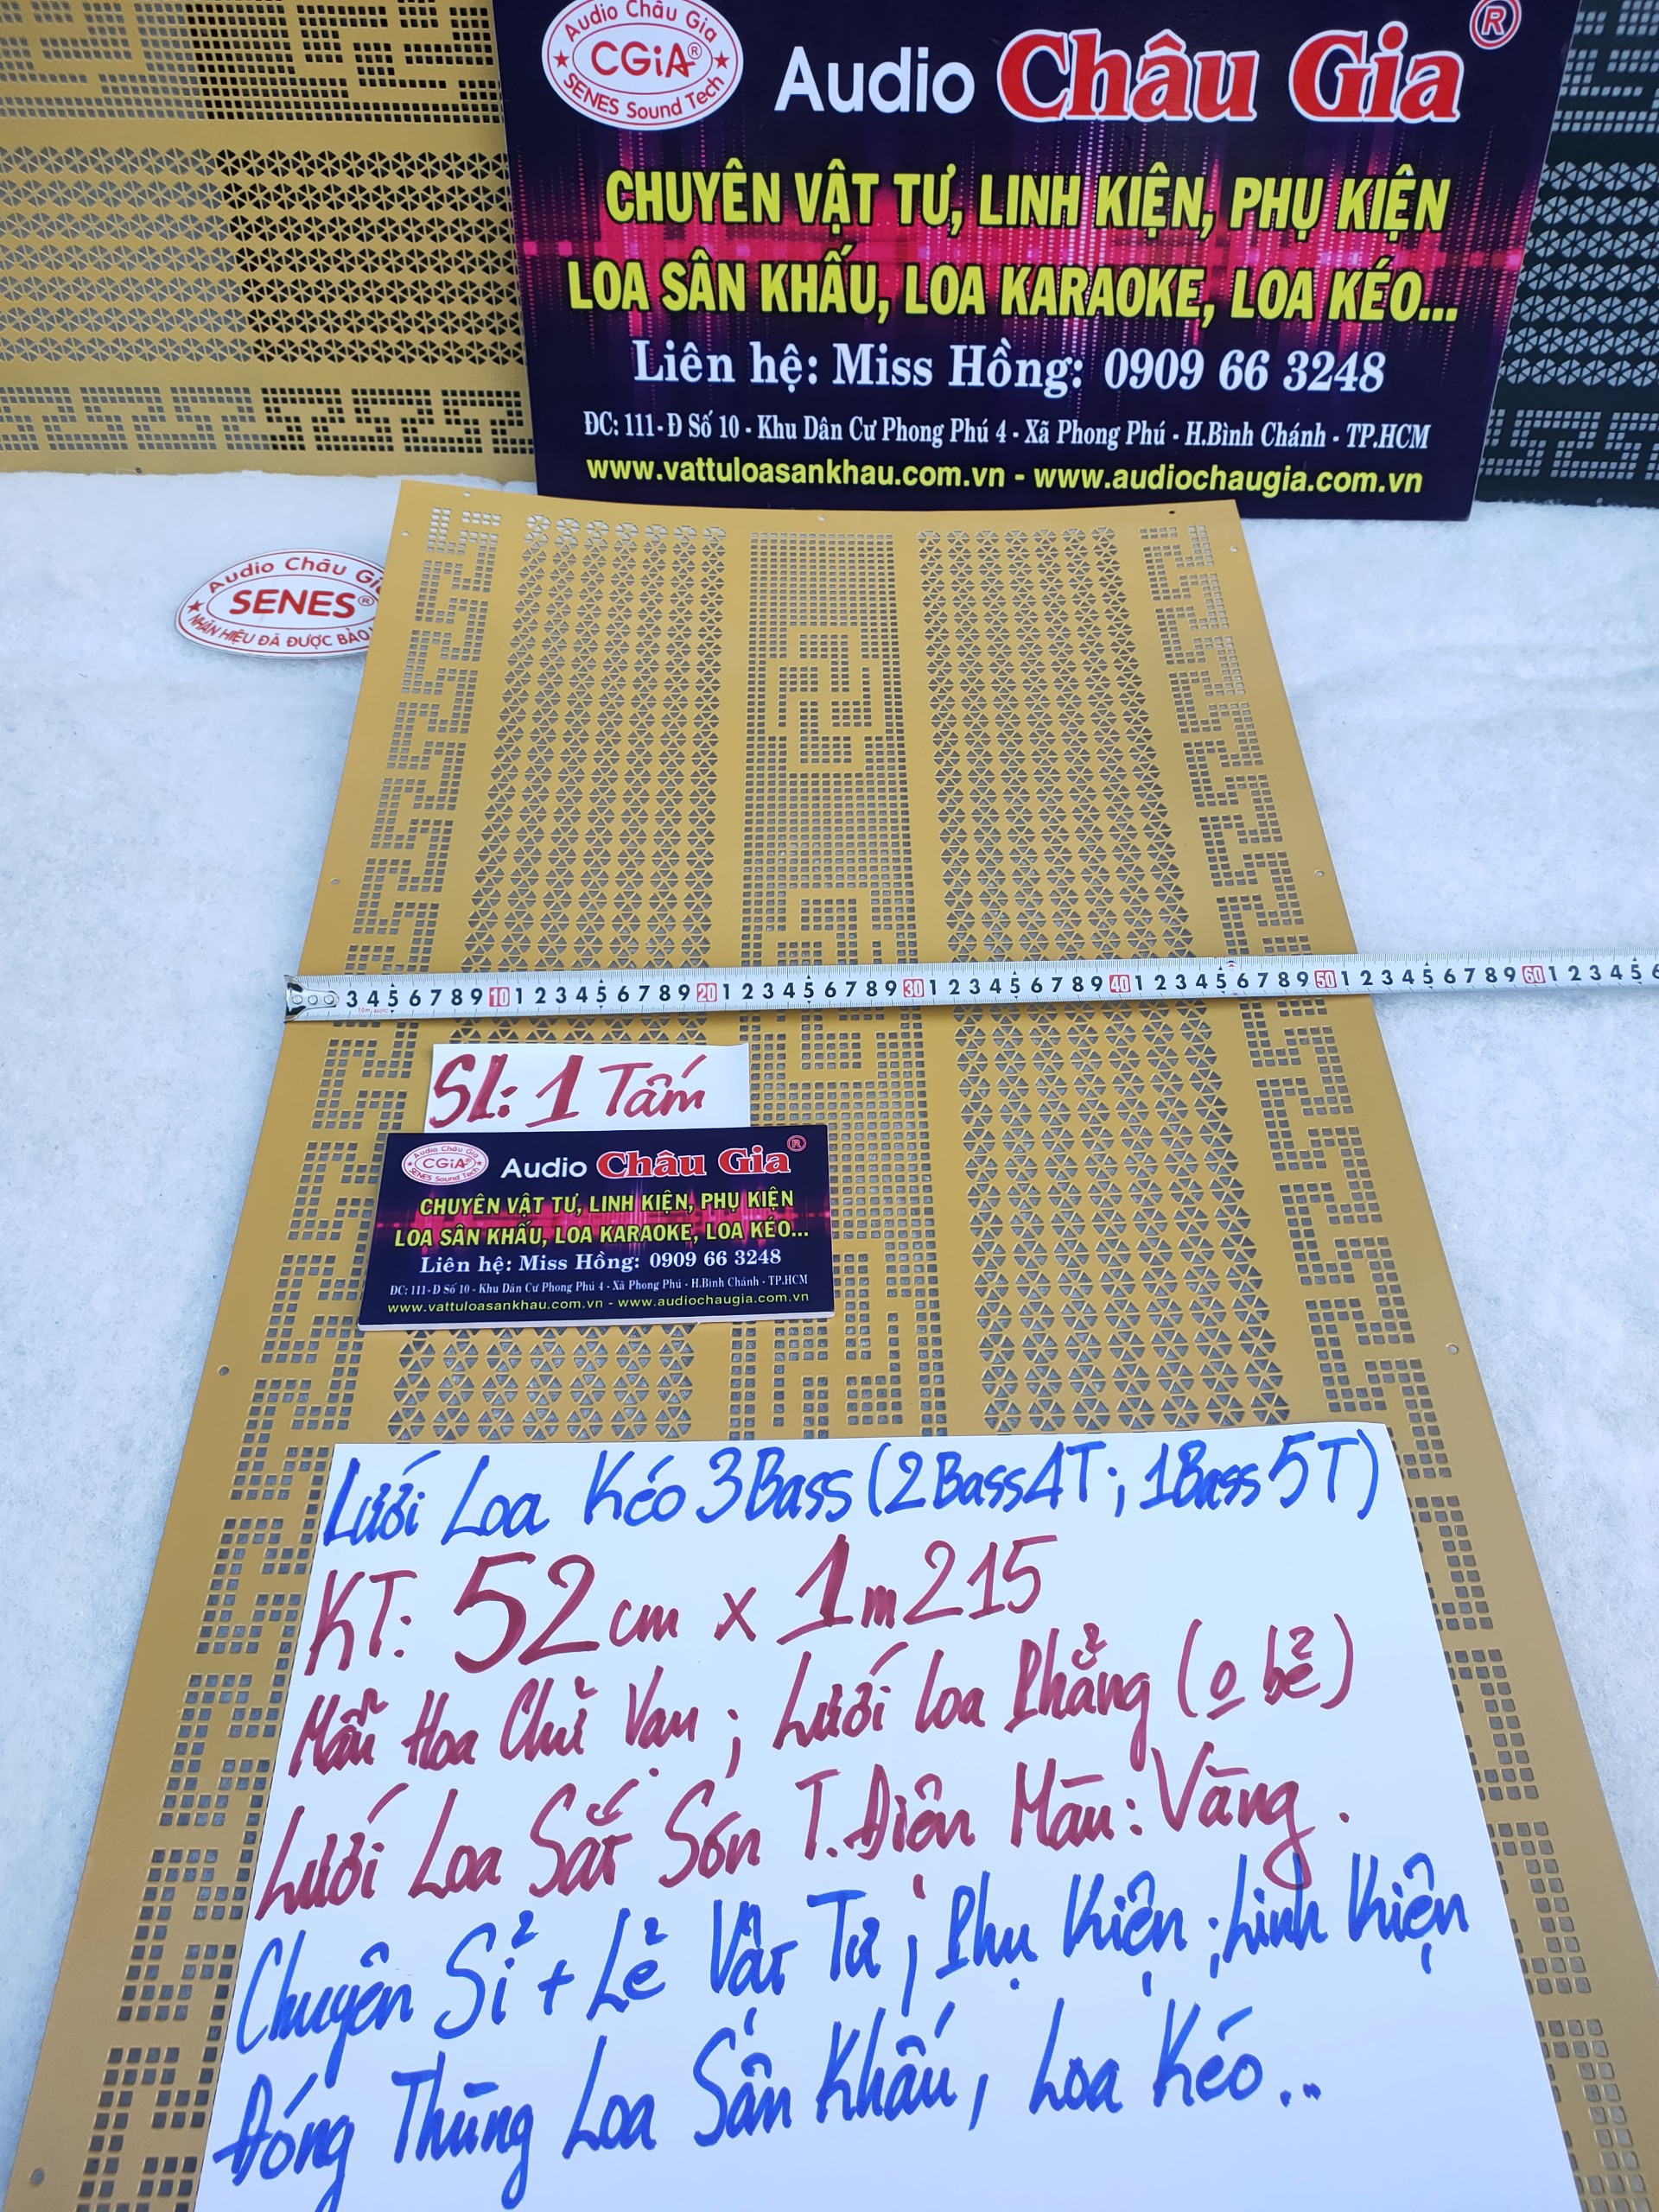 Audio Châu Gia
CGiA®
SENES Sound Tech
Audio Châu Gia ®
CHUYÊN VẬT TƯ, LINH KIỆN, PHỤ KIỆN
LOA SÂN KHẤU, LOA KARAOKE, LOA KÉO...
Liên hệ: Miss Hồng: 0909 66 3248
ĐC: 111- Đ Số 10 - Khu Dân Cư Phong Phú 4 - Xã Phong Phú - H.Bình Chánh - TP.HCM
www.vattuloasankhau.com.vn - www.audiochaugia.com.vn
Audio Châu Gi
SENES®
NHÃN HIỆU ĐÃ ĐƯỢC BẢO
3 4 5 6 7 8 9 10 1 2 3 4 5 6 7 8 9 20 1 2 3 4 5 6 7 8 9 30 1 2 3 4 5 6 7 8 9 40 1 2 3 4 5 6 7 8 9 50 1 2 3 4 5 6 7 8 9 60 1 2 3 4 5 6
SL: 1 Tấm
Audio Châu Gia
CGiA®
SENES Sound Tech
Audio Châu Gia ®
CHUYÊN VẬT TƯ, LINH KIỆN, PHỤ KIỆN
LOA SÂN KHẤU, LOA KARAOKE, LOA KÉO...
Liên hệ: Miss Hồng: 0909 66 3248
ĐC: 111- Đ Số 10 - Khu Dân Cư Phong Phú 4 - Xã Phong Phú - H.Bình Chánh - TP.HCM
www.vattuloasankhau.com.vn - www.audiochaugia.com.vn
Lưới Loa Kéo 3Bass (2Bass4T; 1Bass5T)
KT: 52cm x 1m215
Mẫu Hoa Chữ Vạn; Lưới Loa Phẳng (o bẻ)
Lưới Loa Sắt Sơn T.Điện Màu: Vàng.
Chuyên Sỉ + Lẻ Vật Tư; Phụ Kiện; Linh Kiện
Đóng Thùng Loa Sân Khấu, Loa Kéo...